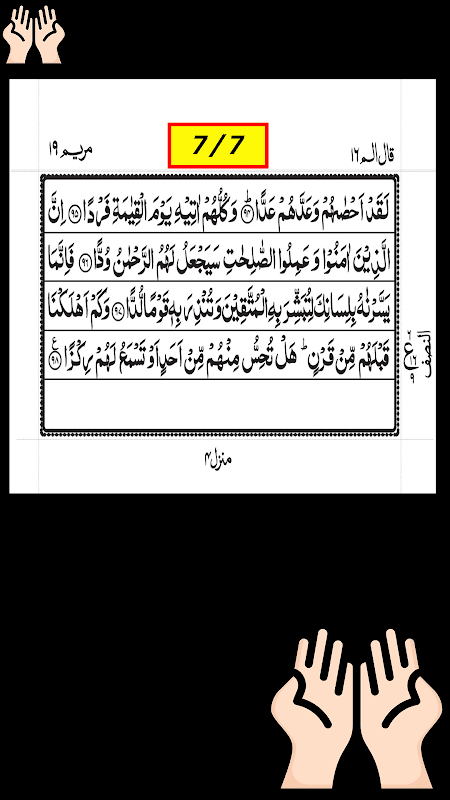 7/7
قال الم ١٦
مريم ١٩
لَقَدْ اَحْصٰىهُمْ وَعَدَّهُمْ عَدًّا ؕ﴿۹۴﴾ وَكُلُّهُمْ اٰتِيْهِ يَوْمَ الْقِيٰمَةِ فَرْدًا ﴿۹۵﴾ اِنَّ
الَّذِيْنَ اٰمَنُوْا وَعَمِلُوا الصّٰلِحٰتِ سَيَجْعَلُ لَهُمُ الرَّحْمٰنُ وُدًّا ﴿۹۶﴾ فَاِنَّمَا
يَسَّرْنٰهُ بِلِسَانِكَ لِتُبَشِّرَ بِهِ الْمُتَّقِيْنَ وَتُنْذِرَ بِهٖ قَوْمًا لُّدًّا ﴿۹۷﴾ وَكَمْ اَهْلَكْنَا
قَبْلَهُمْ مِّنْ قَرْنٍ ؕ هَلْ تُحِسُّ مِنْهُمْ مِّنْ اَحَدٍ اَوْ تَسْمَعُ لَهُمْ رِكْزًا ﴿۹۸﴾ ع
النصف
منزل ۴